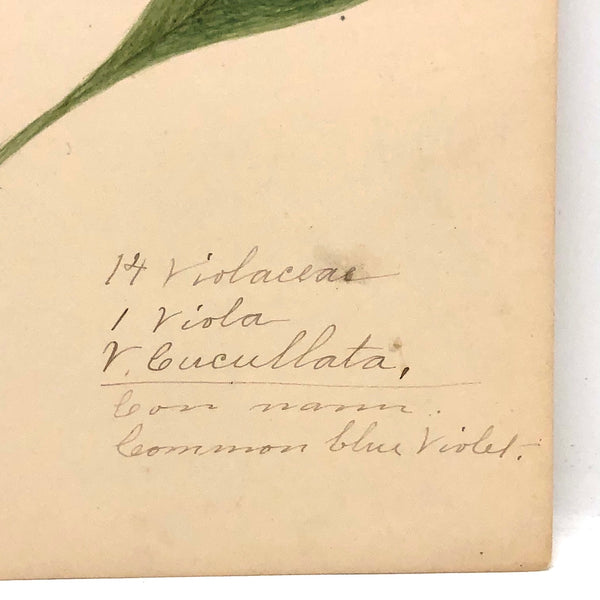 14 Violaceae
1 Viola
V. Cucullata,
Com name.
Common blue Violet.